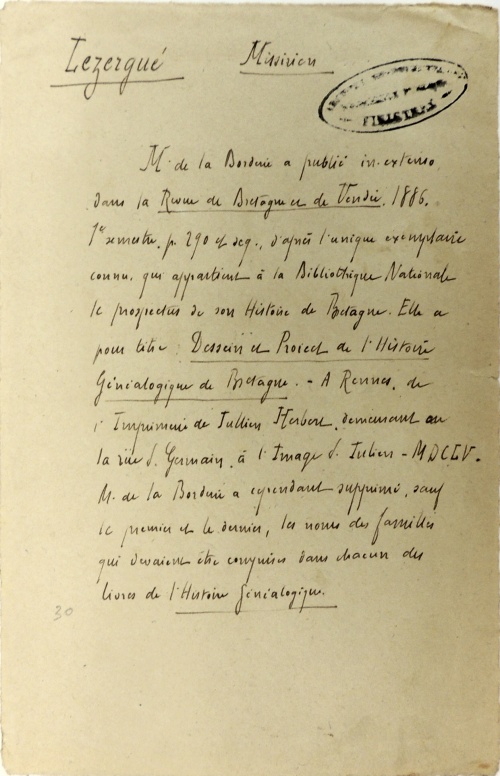 Lezergué Missirien
FINISTÈRE
M. de la Borderie a publié in-extenso
dans la Revue de Bretagne et de Vendée, 1886,
1er semestre, p. 290 et seq., d'après l'unique exemplaire
connu, qui appartient à la Bibliothèque Nationale
le prospectus de son Histoire de Bretagne. Elle a
pour titre : Dessein et Proiect de l'Histoire
Généalogique de Bretagne. - A Rennes, de
l'Imprimerie de Iullien Herbert, demeurant en
la rüe S. Germain, à l'Image S. Iulien - MDCLV.
M. de la Borderie a cependant supprimé, sauf
le premier et le dernier, les noms des familles
qui devaient être comprises dans chacun des
livres de l'Histoire Généalogique.
30